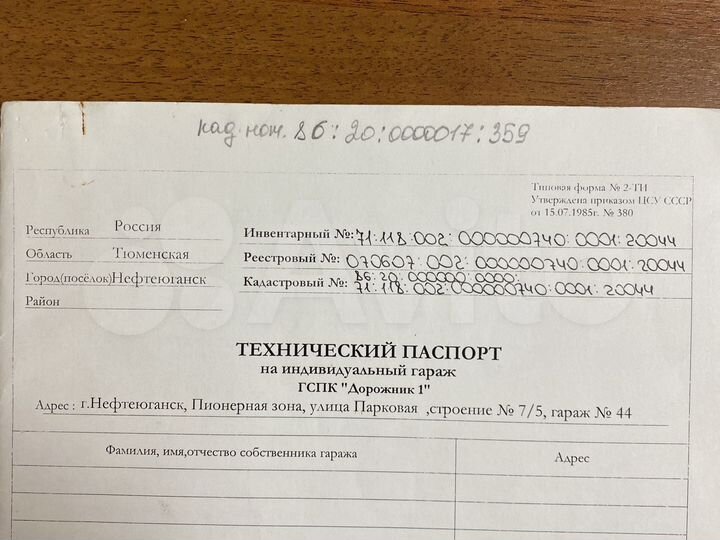 кад. ном. 86:20:0000017:359
Типовая форма № 2-ТИ
Утверждена приказом ЦСУ СССР
от 15.07.1985г. № 380
Республика Россия
Инвентарный №: 71:118:002:000000740:0001:20044
Область Тюменская
Реестровый №: 070607:002:000000740:0001:20044
Город(посёлок) Нефтеюганск
86:20:000000:0000:
Кадастровый №: 71:118:002:000000740:0001:20044
Район
ТЕХНИЧЕСКИЙ ПАСПОРТ
на индивидуальный гараж
ГСПК "Дорожник 1"
Адрес : г.Нефтеюганск, Пионерная зона, улица Парковая ,строение № 7/5, гараж № 44
Фамилия, имя,отчество собственника гаража
Адрес
Avito